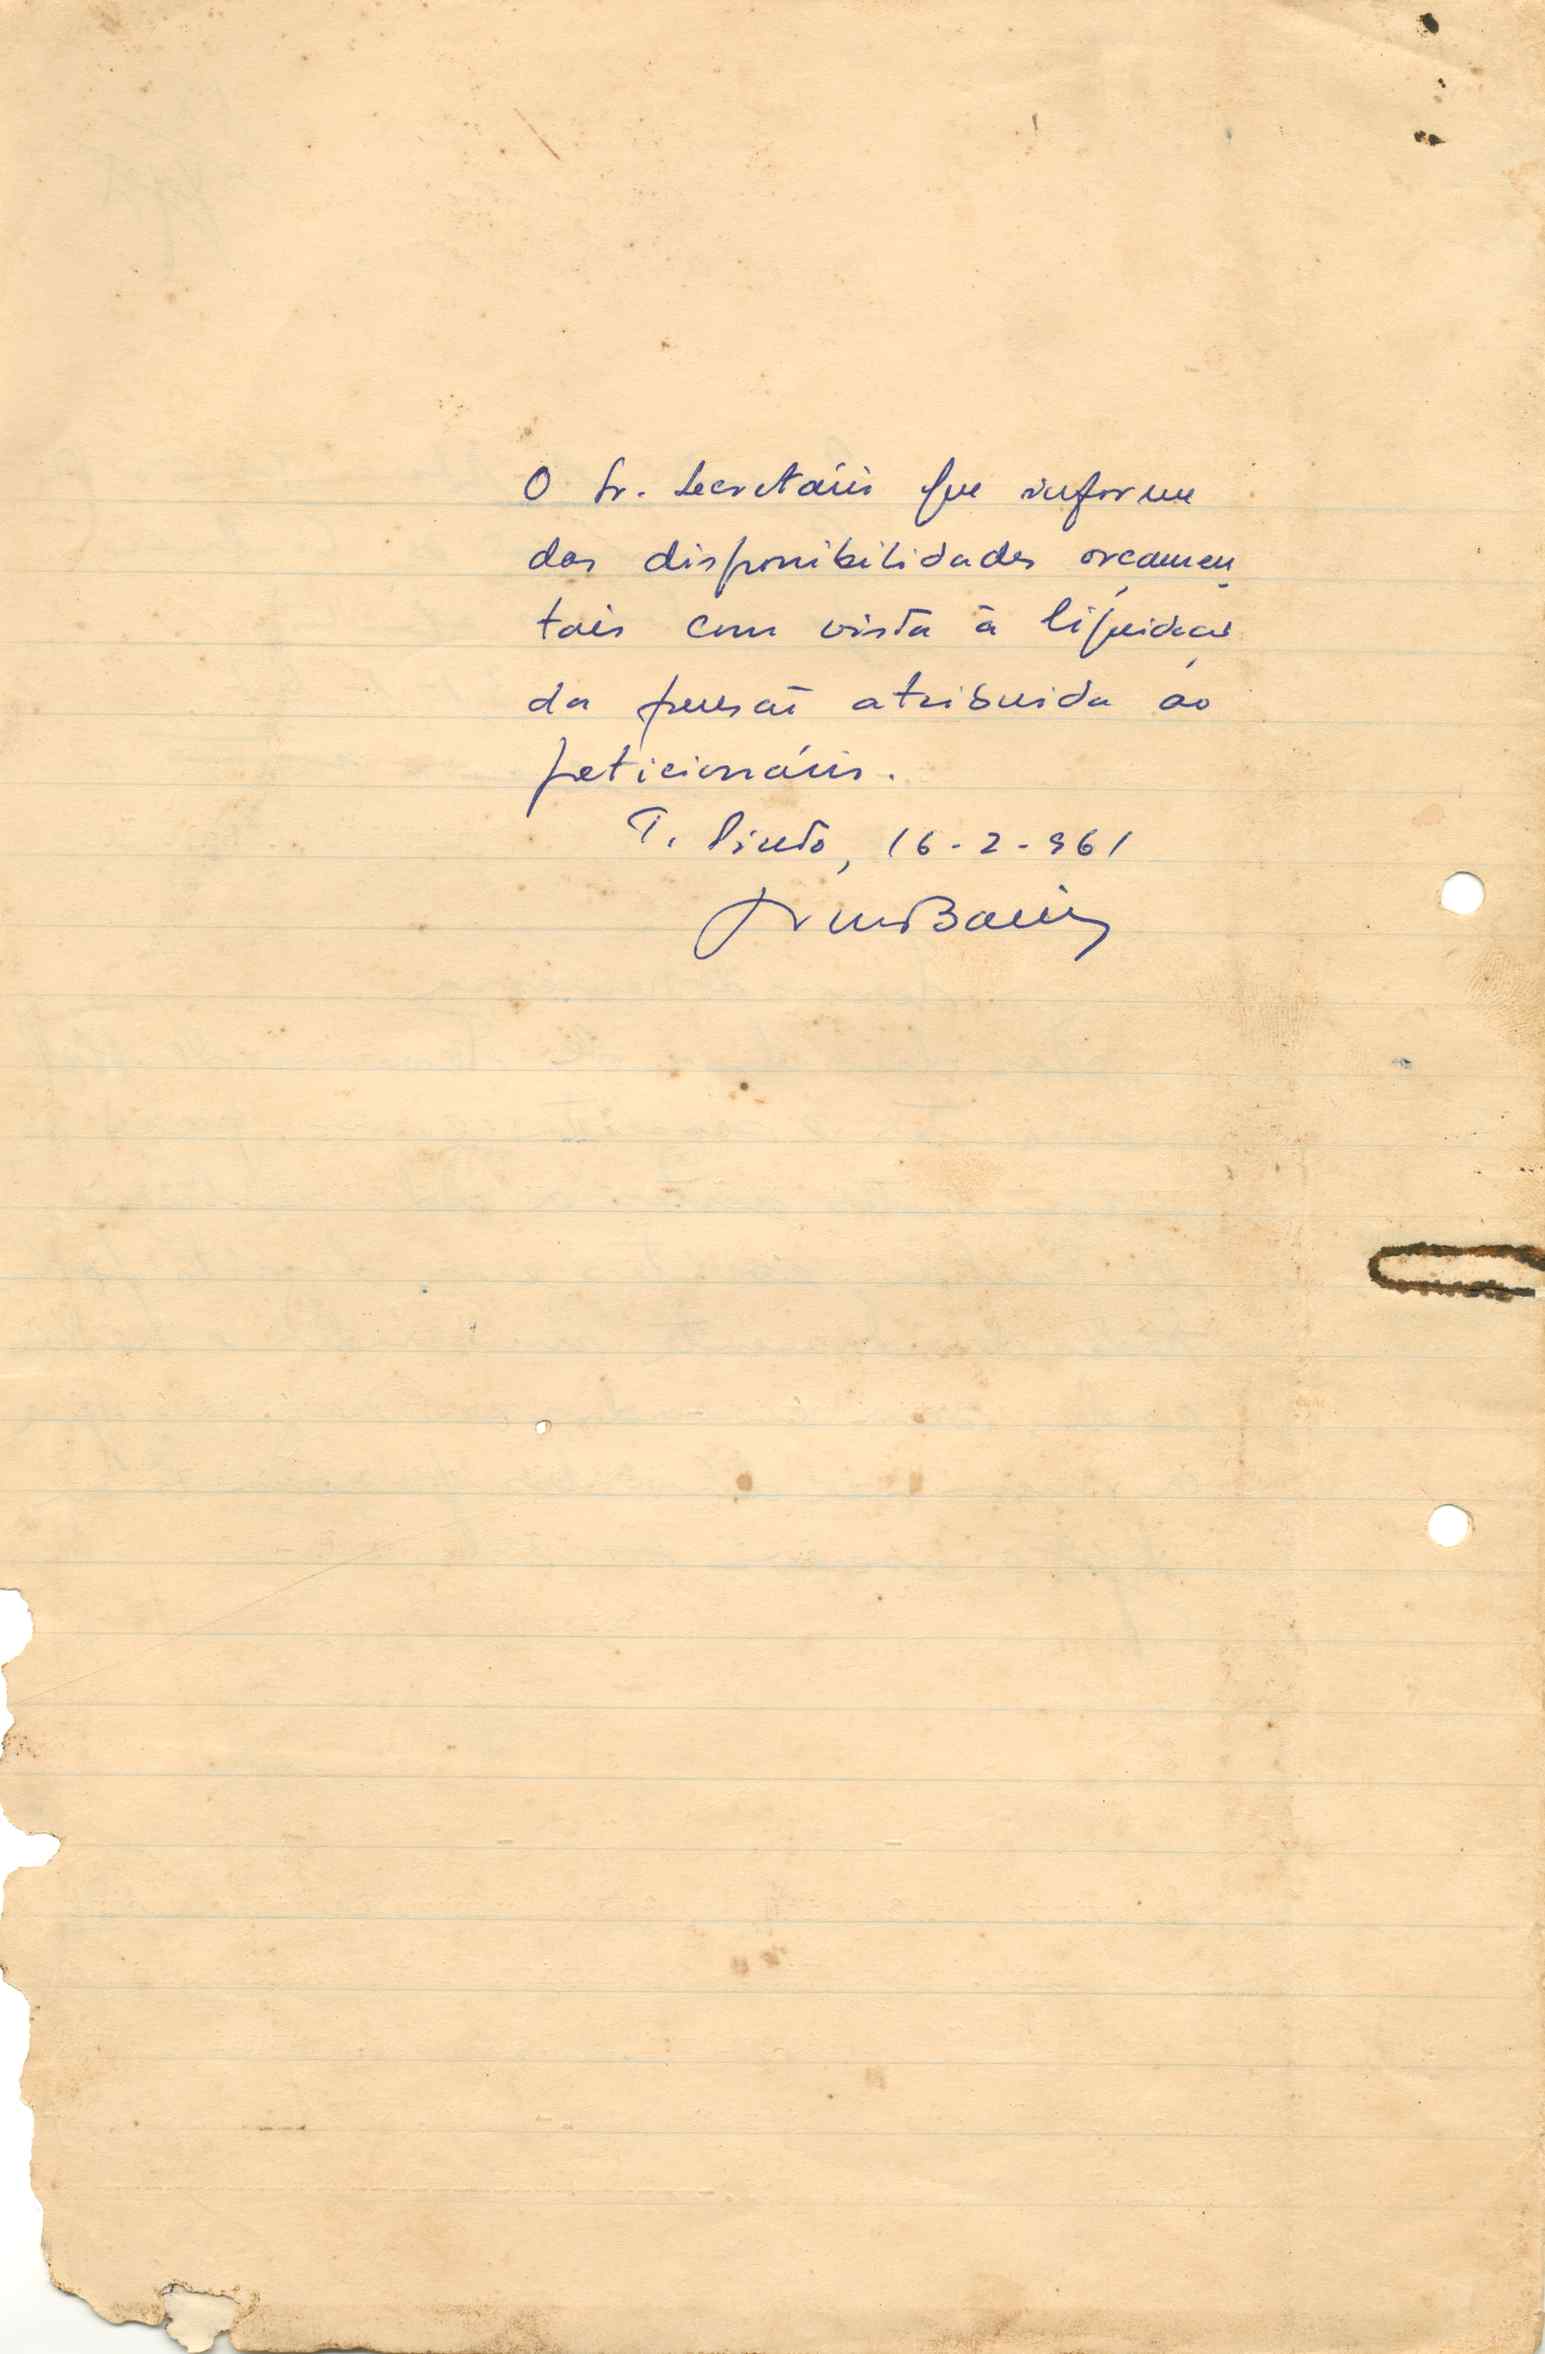 O Sr. Secretário que informe
das disponibilidades orçamen
tais com vista à liquidação
da pensão atribuida ao
peticionário.
T. Pinto, 16-2-961